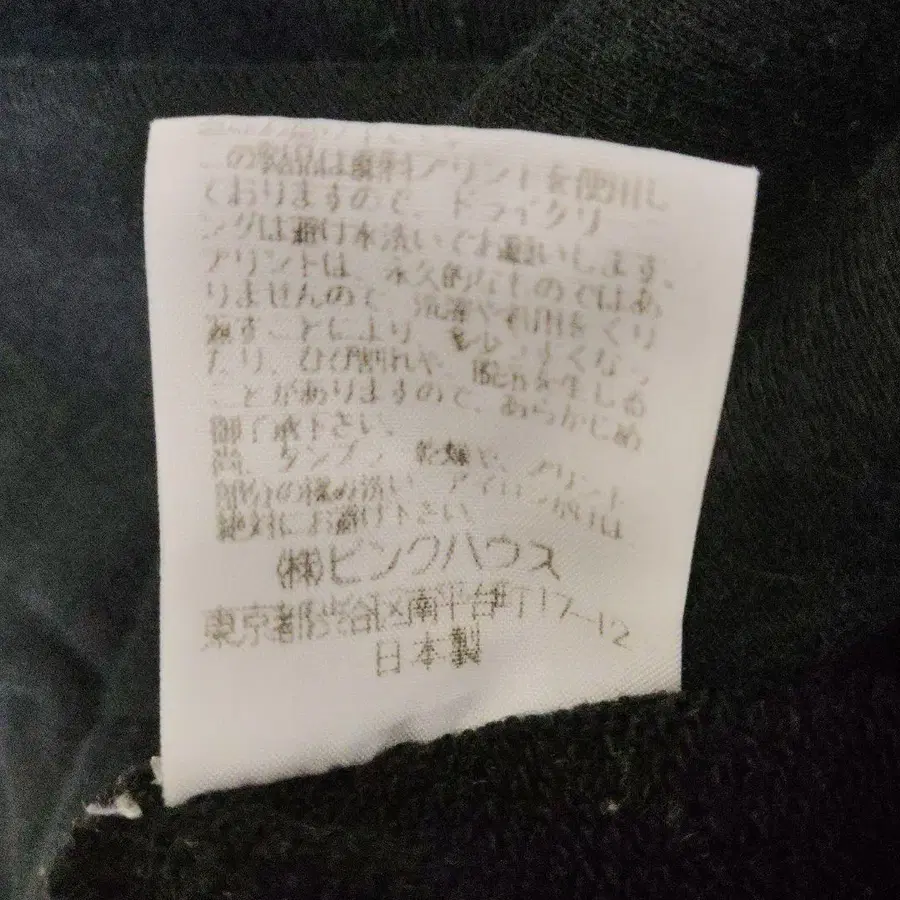 の製品は顔料プリントを使用し
ておりますので、ドライクリ
ングは避け水洗いでお願いします。
プリントは、永久的なものではあ
りませんので、洗濯や着用をくり
返すことにより、
たり、ひび割れや、 を生じる
ことがありますので、あらかじめ
御了承下さい。
尚、タンブラー乾燥や、プリント
部分の揉み洗い、アイロン掛けは
絶対にお避け下さい。
(株)ピンクハウス
東京都渋谷区南平台町17-12
日本製